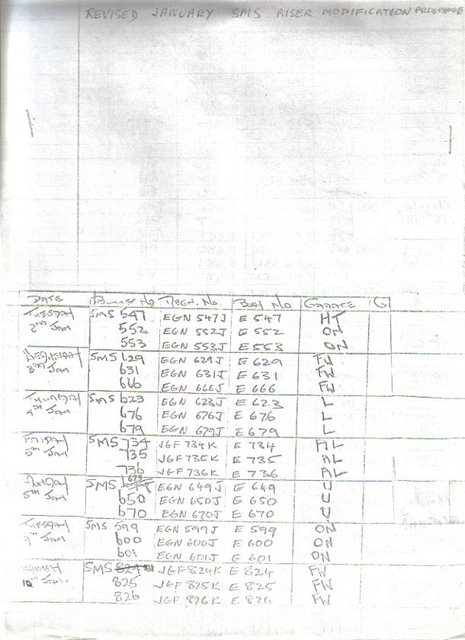 REVISED JANUARY SMS RISER MODIFICATION PROGRAMME
DATE BONNET No REGN. No BODY No GARAGE G
TUESDAY SMS 547 EGN 547J E 547 HT
2ND JAN 552 EGN 552J E 552 ON
553 EGN 553J E 553 ON
WEDNESDAY SMS 629 EGN 629J E 629 FW
3RD JAN 631 EGN 631J E 631 FW
666 EGN 666J E 666 FW
THURSDAY SMS 623 EGN 623J E 623 L
4TH JAN 676 EGN 676J E 676 L
679 EGN 679J E 679 L
FRIDAY SMS 734 JGF 734K E 734 AL
5TH JAN 735 JGF 735K E 735 AL
736 JGF 736K E 736 AL
SMS EGN 649J E 649 U
5TH JAN 650 EGN 650J E 650 U
670 EGN 670J E 670 U
TUESDAY SMS 599 EGN 599J E 599 ON
9TH JAN 600 EGN 600J E 600 ON
601 EGN 601J E 601 ON
SMS 824 JGF 824K E 824 FW
10TH JAN 825 JGF 825K E 825 FW
826 JGF 826K E 826 FW